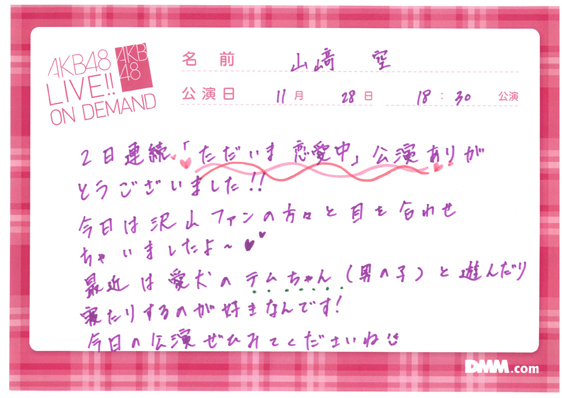 AKB48
LIVE!!
ON DEMAND
AKB
48
名前 山﨑 空
公演日 11月 28日 18:30 公演
2日連続「ただいま 恋愛中」公演ありが
とうございました!!
今日は沢山ファンの方々と目を合わせ
ちゃいましたよ~
最近は愛犬のテムちゃん(男の子)と遊んだり
寝たりするのが好きなんです!
今日の公演ぜひみてくださいね
DMM.com